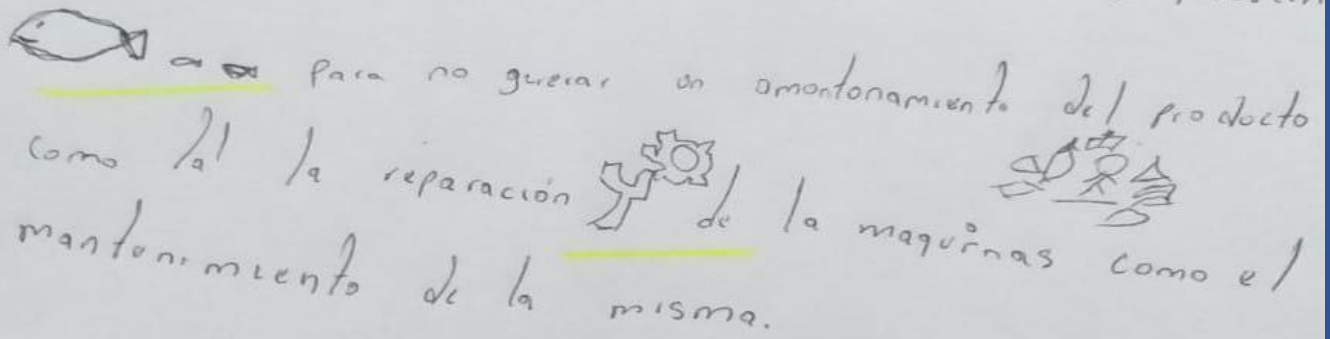 para no guerar un amontonamiento del producto
como tal la reparación de la maquinas como el
mantenimiento de la misma.